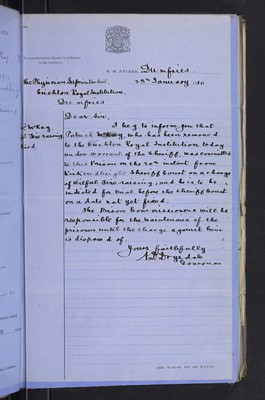 All communications should be addressed
to the Governor.
H. M. PRISON, Dumfries
28th January 1910
The Physician Superintendent,
Crichton Royal Institution,
Dumfries
Dear Sir,
I beg to inform you that
Patrick McKay, who has been removed
to the Crichton Royal Institution today
under Warrant of the Sheriff, was committed
to this Prison on the 20th instant from
Kirkcudbright Sheriff Court on a charge
of Wilful Fire raising, and he is to be
indicted for trial before the Sheriff Court
on a date not yet fixed.
The Prison Commissioners will be
responsible for the maintenance of the
prisoner until the charge against him
is disposed of.
Yours faithfully
Drysdale
Governor
McKay
Fire raising